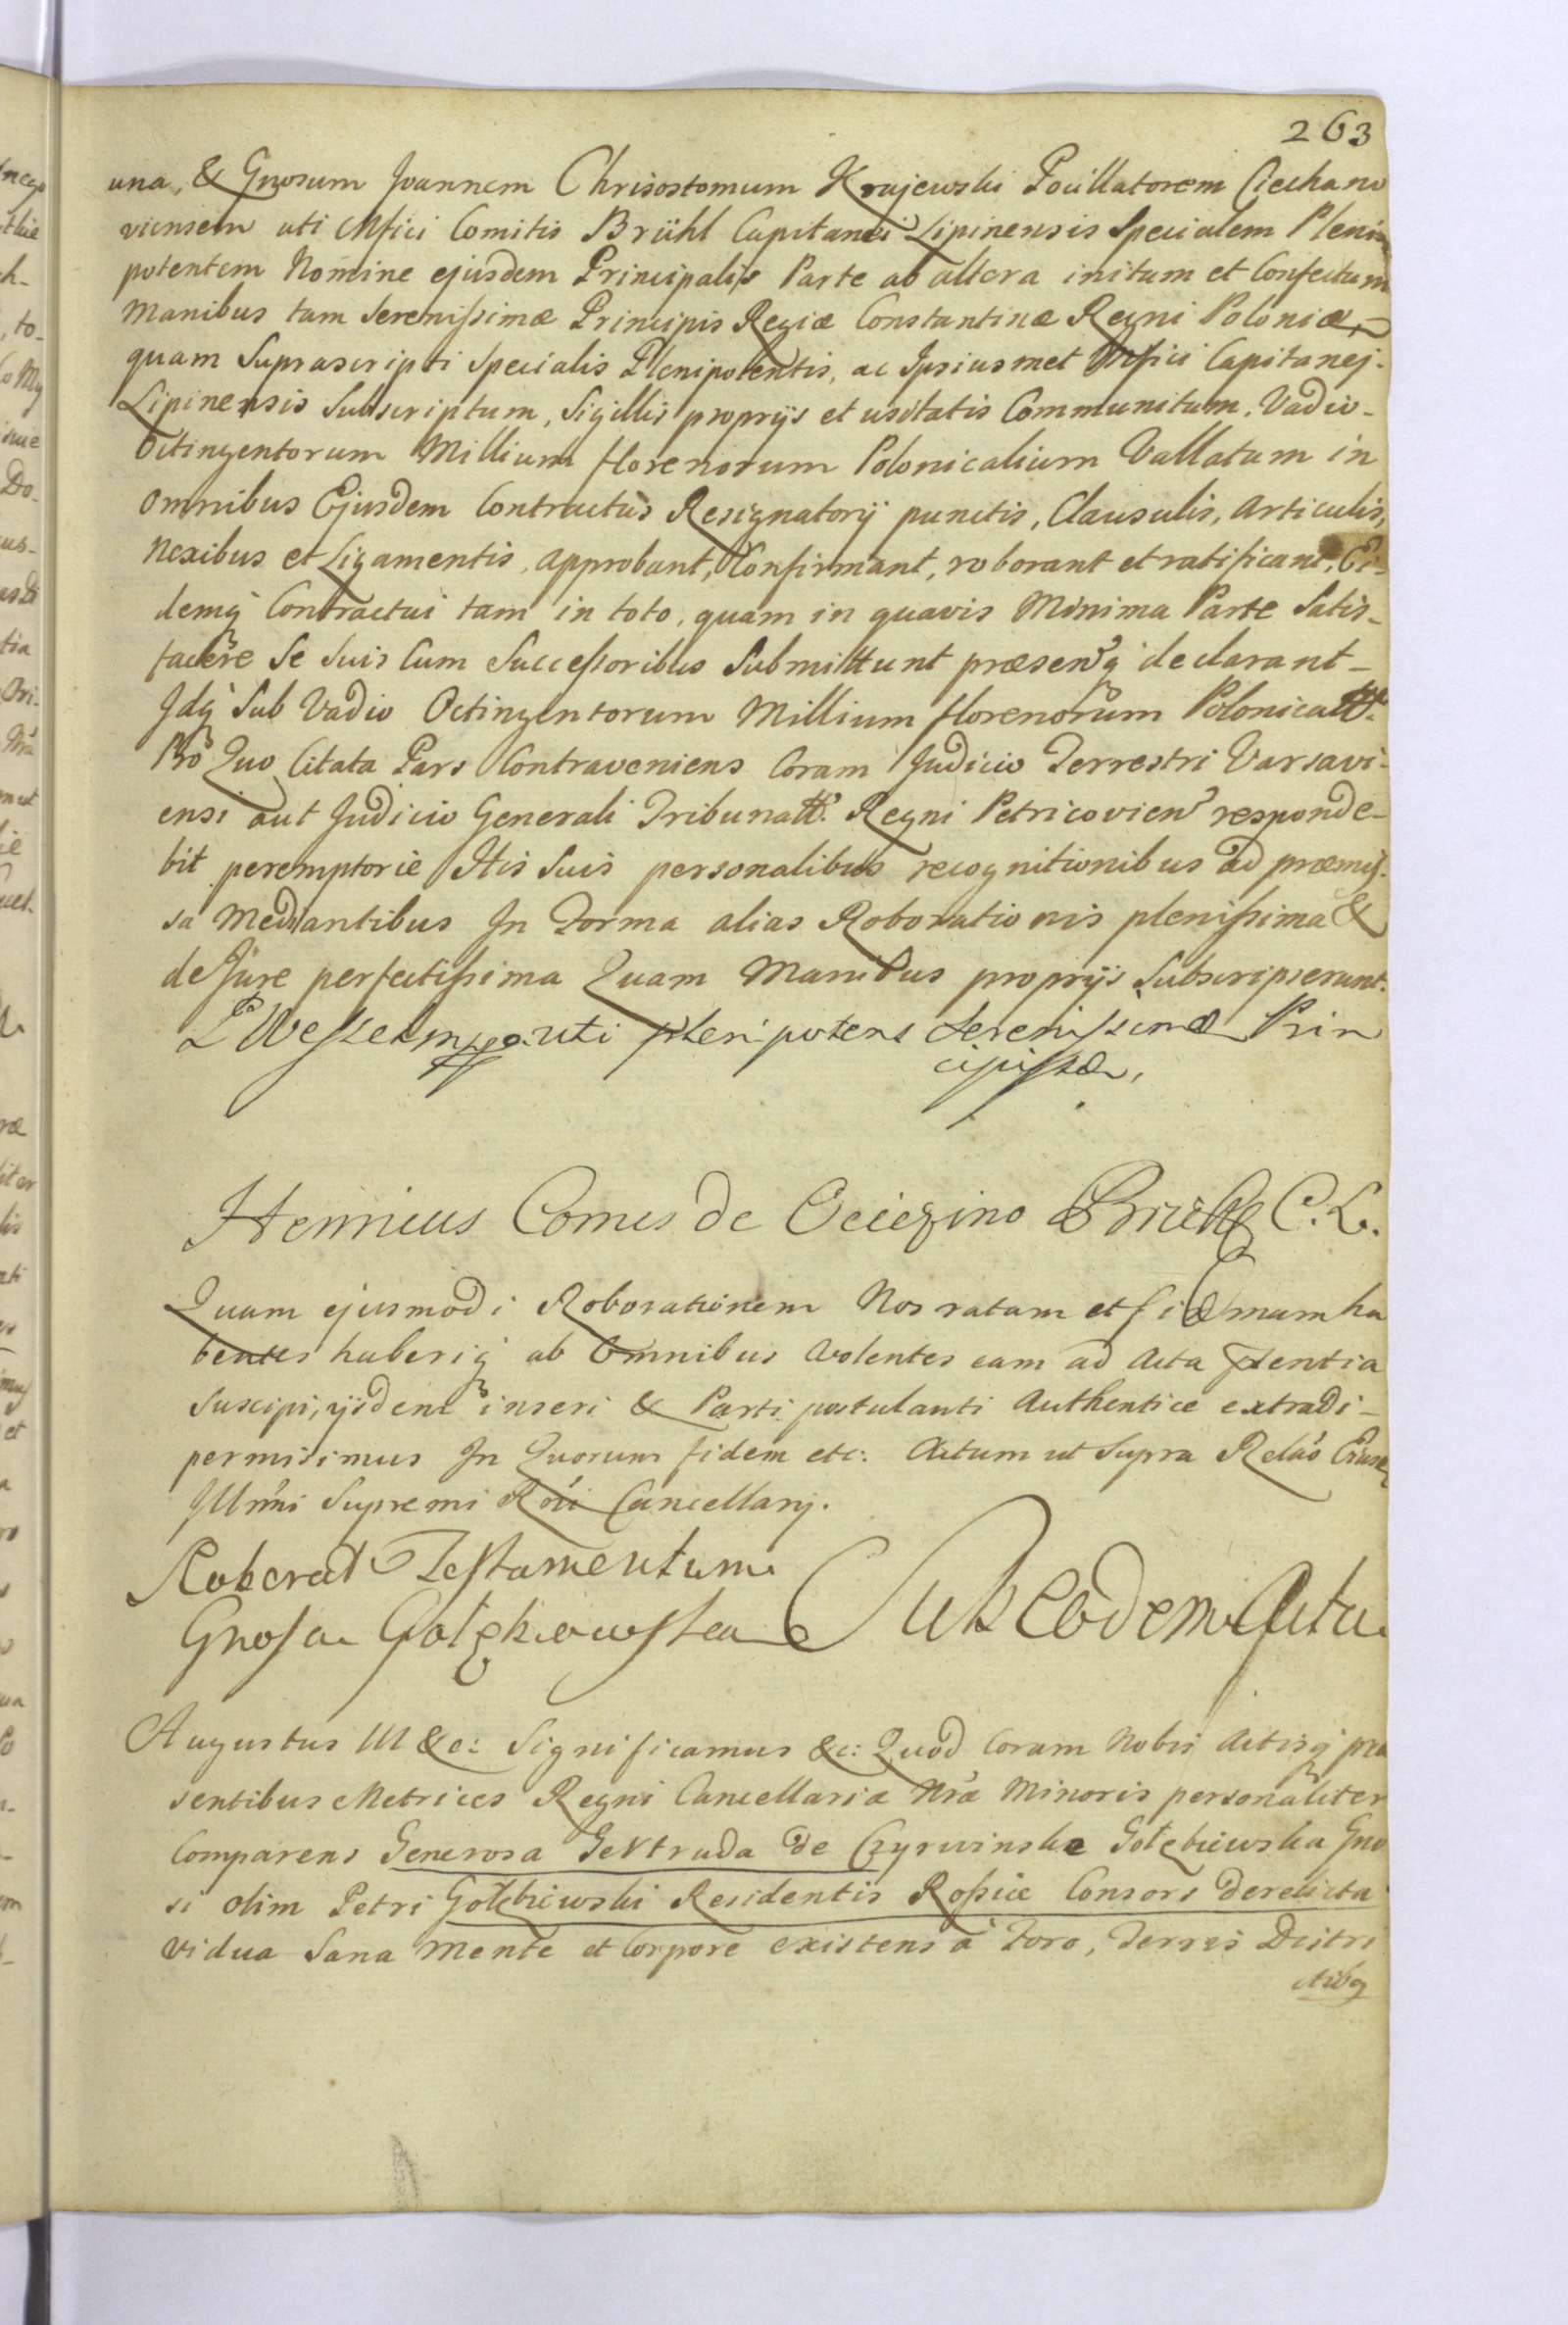 263
una, & Gnosum Joannem Chrisostomum Krajewski Pocillatorem Ciechano
viensem uti Mfici Comitis Brühl Capitanei Lipinensis Specialem Pleni
potentem Nomine ejusdem Principalis Parte ab altera initum et Confectum
Manibus tam Serenissimæ Principis Regiæ Constantinæ Regni Poloniæ,
quam Suprascripti Specialis Plenipotentis, ac Ipsiusmet Mfici Capitanej
Lipinensis Subscriptum, Sigillis proprijs et usitatis Communitum, Vadio
Octingentorum Millium florenorum Polonicalium Vallatum in
omnibus Ejusdem Contractûs Resignatorij punctis, Clausulis, Articulis,
Nexibus et Ligamentis, approbant, Confirmant, roborant et ratificant, Ei
demq Contractui tam in toto, quam in quavis Minima Parte Satis-
facere Se Suis Cum Successoribus Submittunt præsenq declarant-
Idq Sub Vadio Octingentorum Millium florenorum Polonicall.
Pro Quo Citata Pars Contraveniens Coram Judicio Terrestri Varsavi-
ensi aut Judicio Generali Tribunall. Regni Petricovien responde-
bit peremptorie Htis Suis personalibus recognitionibus ad præmis-
sa Mediantibus In Forma alias Roborationis plenissima &
de Jure perfectissima Quam Manibus proprijs Subscripserunt.
Wessel mpp. uti plenipotens Serenissimæ Prin
cipissæ,
Henricus Comes de Ocieszino Brühl C. L.
Quam ejusmodi Roborationem Nos ratam et firmam ha
bentes haberiq ab Omnibus Volentes eam ad Acta pntia
Suscipi, ijsdem inseri & Parti postulanti Authentice extradi-
permisimus In Quorum fidem etc: Actum ut Supra Relao Ejusd
Illmi Supremi Rni Cancellarij.
Roborat Testamentum
Gnosa Gołębiowska
Sub Eodem Actu
Augustus III &c: Significamus &c: Quod Coram Nobis Actisq præ
sentibus Metrices Regni Cancellariæ Nræ Minoris personaliter
Comparens Generosa Gertruda de Czyrwinskie Gołębiewska Gno
si olim Petri Gołębiewski Residentis Rossiæ Consors derelicta
vidua Sana Mente et Corpore existens à Foro, Terris Distri
ctibq